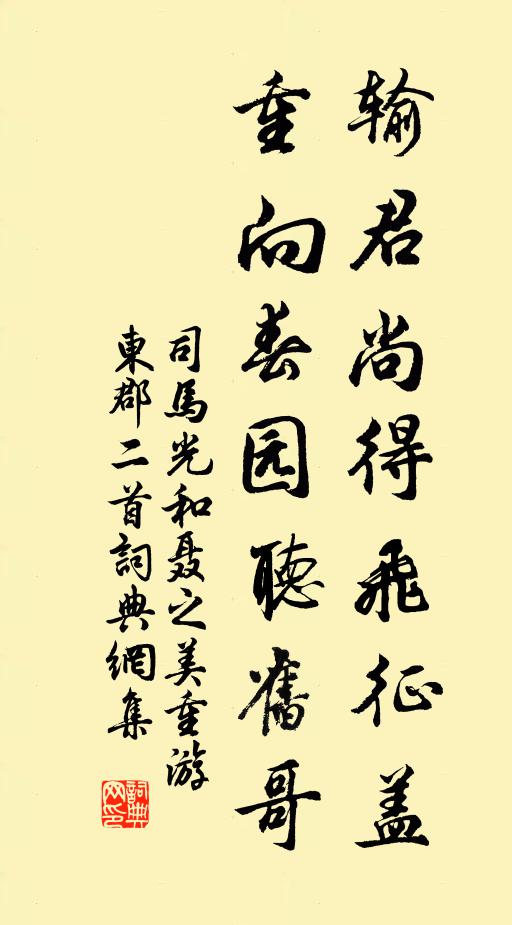 输君尚得飛征盖
重向春园聴舊哥
司馬光和聂之美重游
東郡二首詞典網集
詞典网印